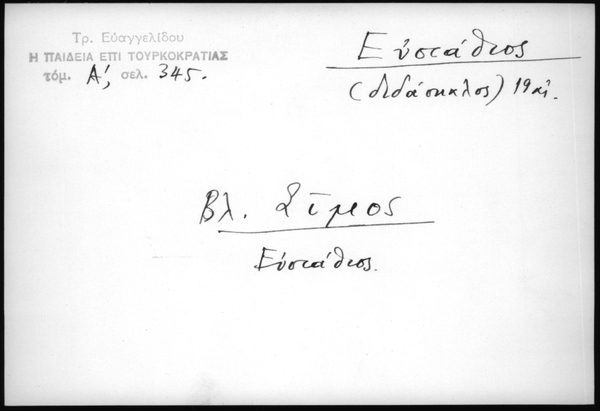 Τρ. Εὐαγγελίδου
Η ΠΑΙΔΕΙΑ ΕΠΙ ΤΟΥΡΚΟΚΡΑΤΙΑΣ
τόμ. Α', σελ. 345.
Εὐστάθιος
(διδάσκαλος) 19 αἰ.
Βλ. Σῖμος
Εὐστάθιος.